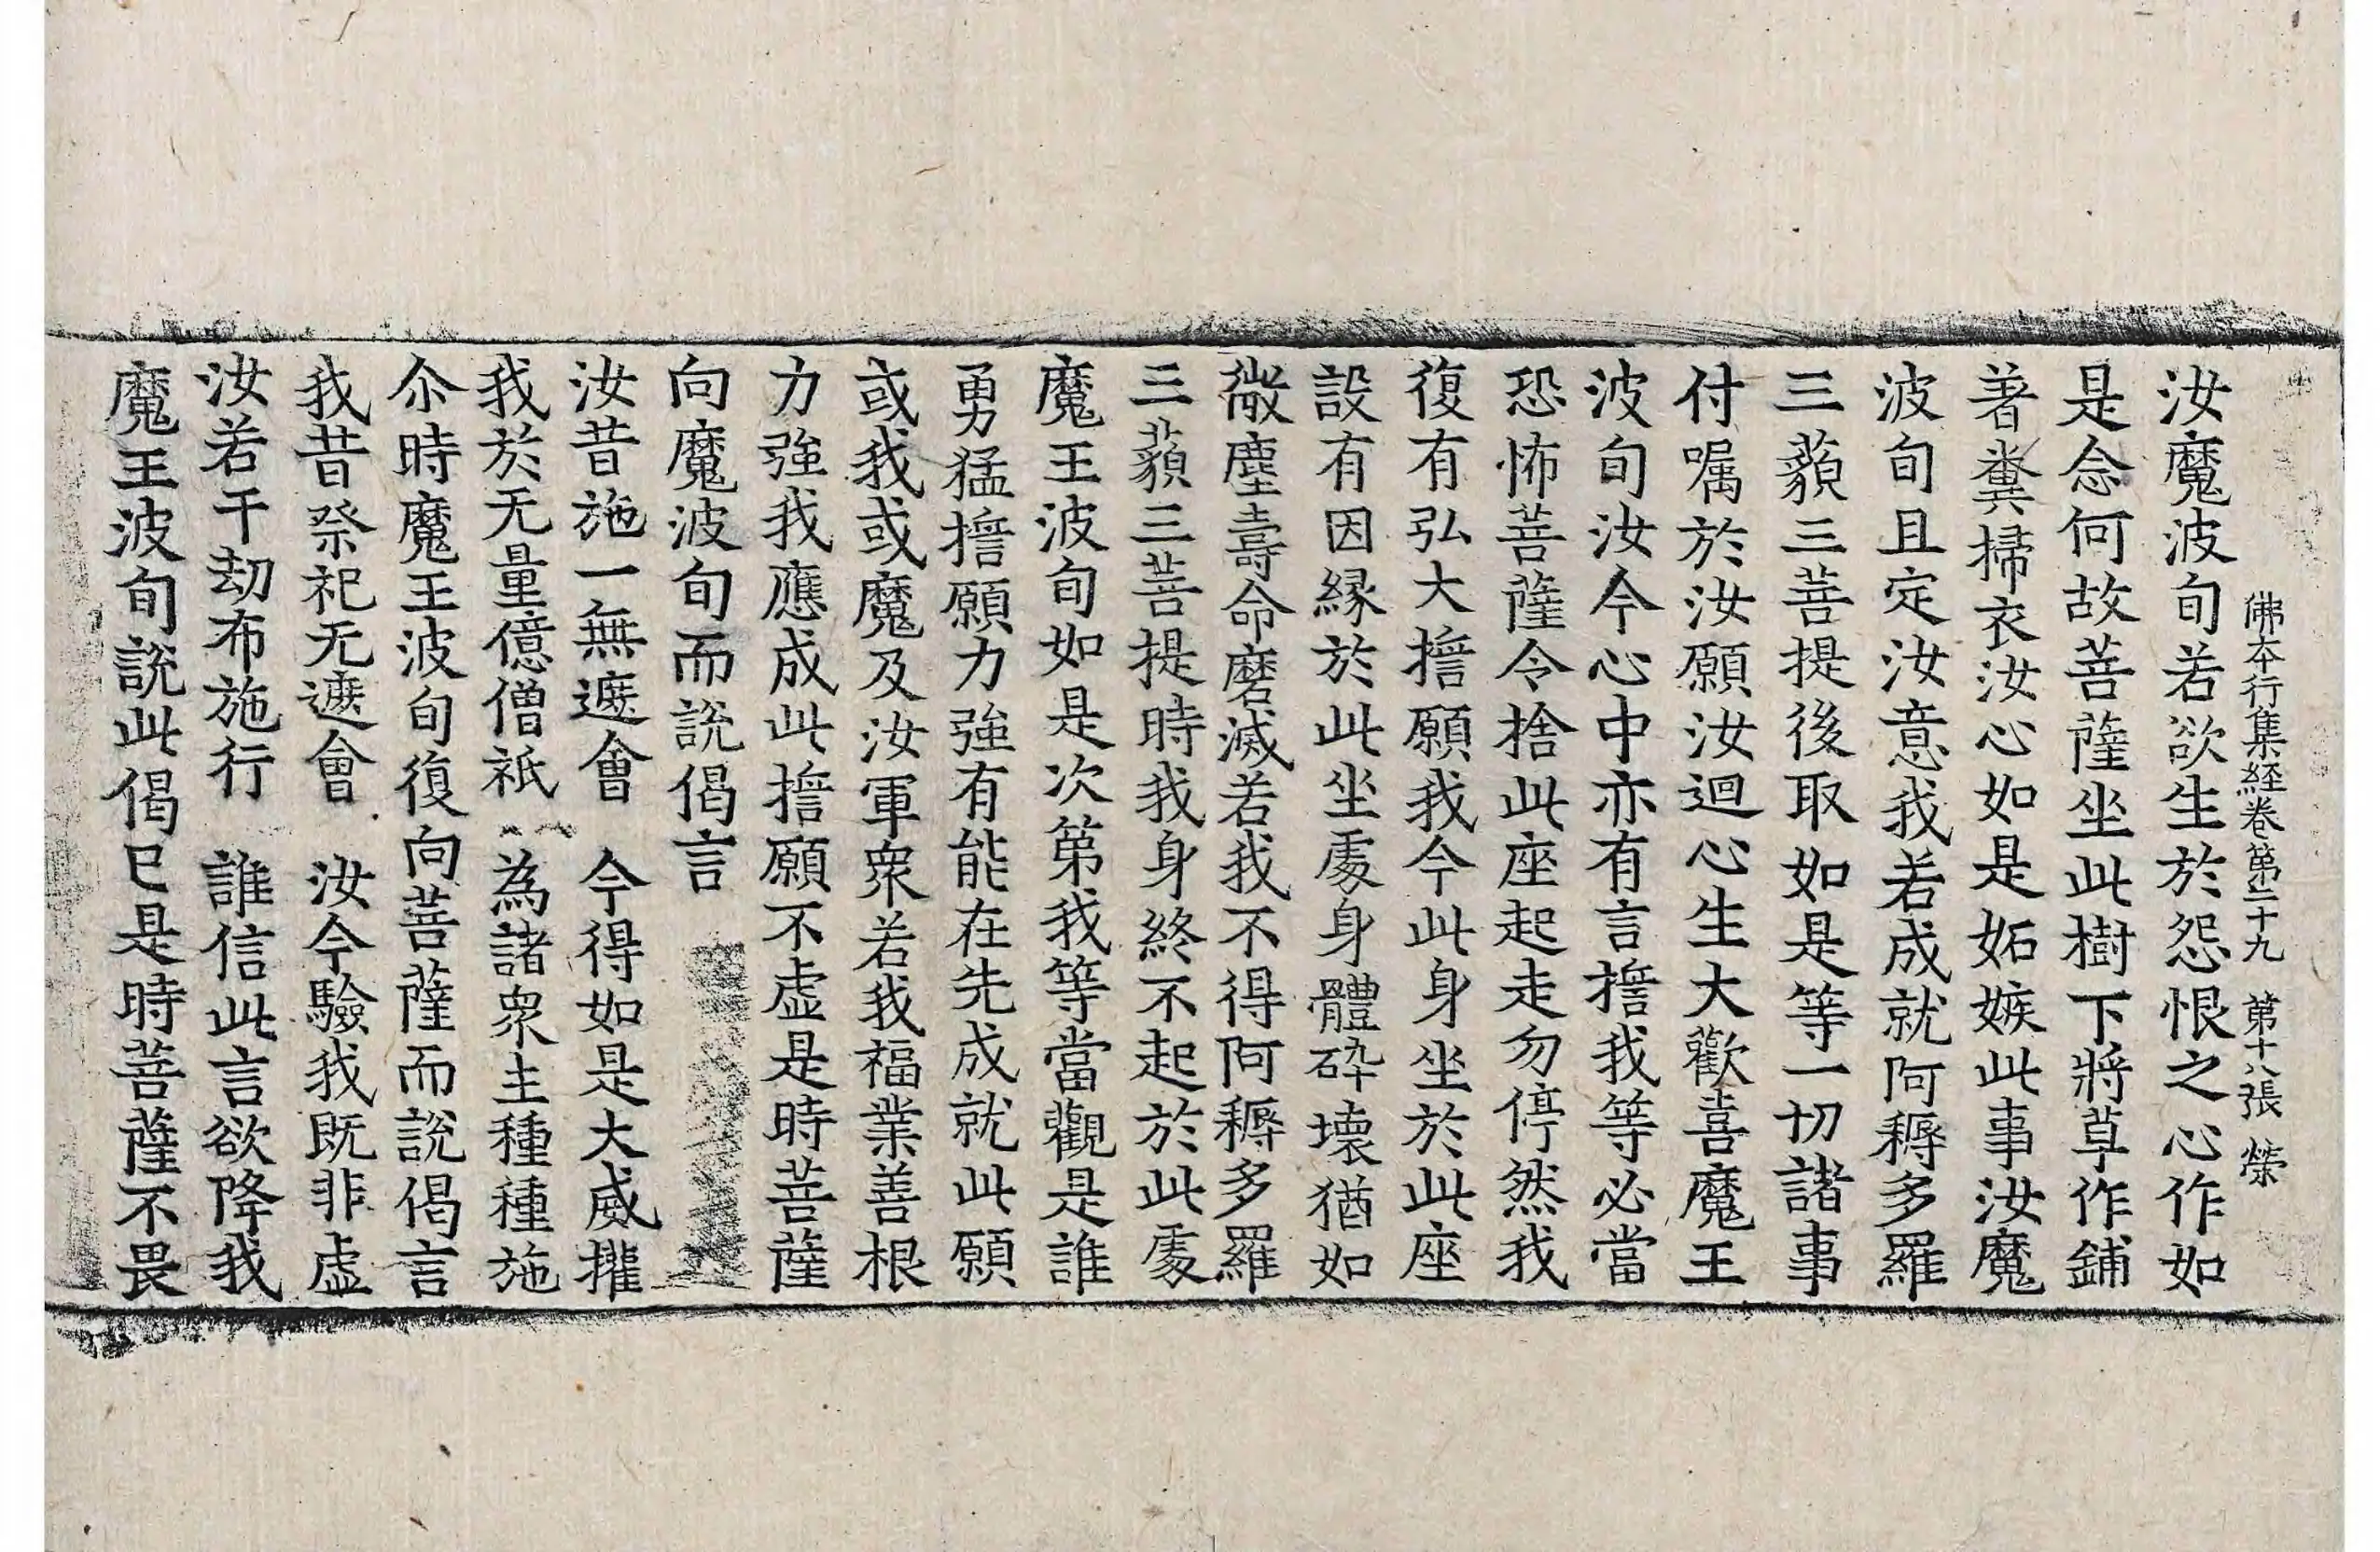 佛本行集経卷第二十九 第十八張 榮
汝魔波旬若欲生於怨恨之心作如
是念何故菩薩坐此樹下將草作鋪
著糞掃衣汝心如是妬嫉此事汝魔
波旬且定汝意我若成就阿耨多羅
三藐三菩提後取如是等一切諸事
付嘱於汝願汝迴心生大歡喜魔王
波旬汝今心中亦有言擔我等必當
恐怖菩薩令捨此座起走勿停然我
復有弘大擔願我今此身坐於此座
設有因縁於此坐處身體碎壞猶如
微塵壽命磨滅若我不得阿耨多羅
三藐三菩提時我身終不起於此處
魔王波旬如是次第我等當觀是誰
勇猛擔願力強有能在先成就此願
或我或魔及汝軍衆若我福業善根
力強我應成此擔願不虛是時菩薩
向魔波旬而說偈言
汝昔施一無遮會 今得如是大威攉
我於无量億僧祇 為諸衆生種種施
尒時魔王波旬復向菩薩而說偈言
我昔祭祀无遮會 汝今驗我既非虛
汝若干劫布施行 誰信此言欲降我
魔王波旬說此偈已是時菩薩不畏